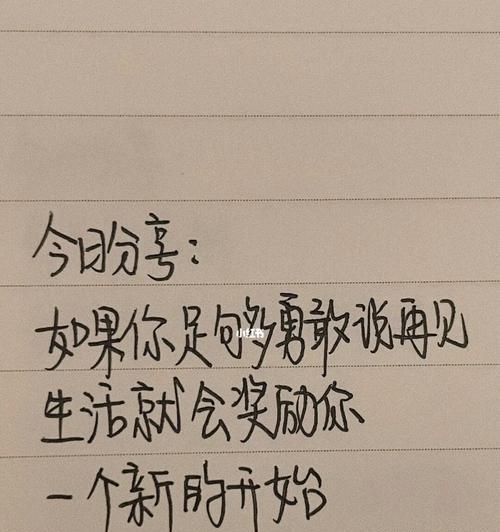 今日分享：
如果你足够勇敢说再见
小红书
生活就会奖励你
一个新的开始